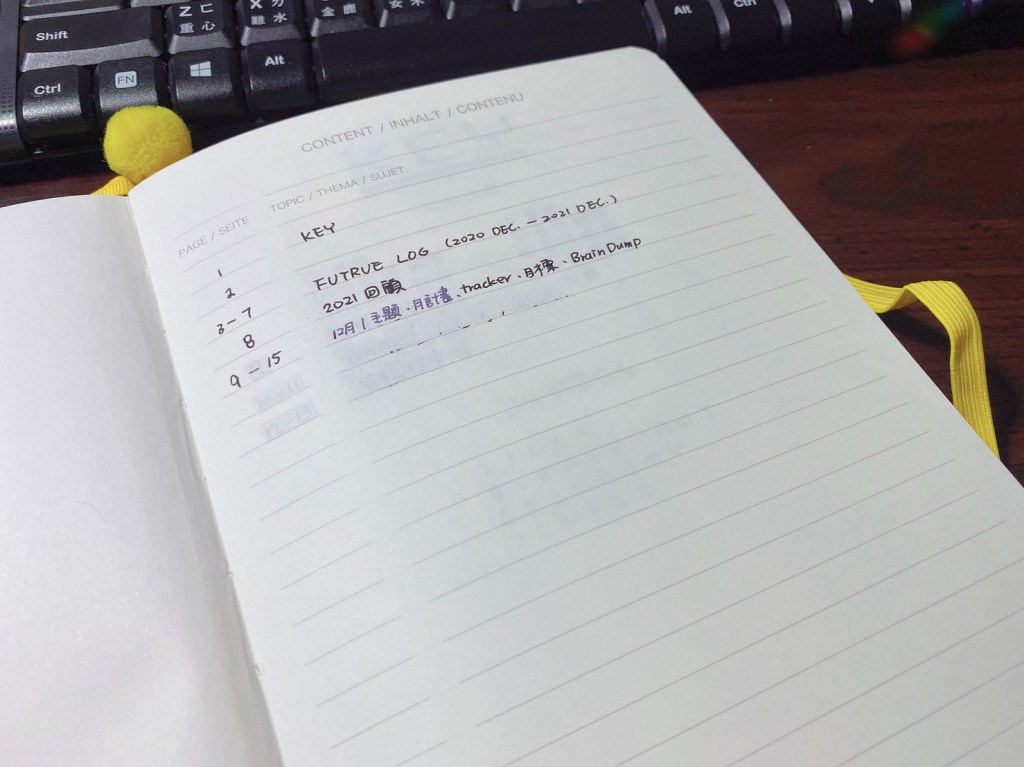 Shift
Z ㄈ
重 心
X ㄌ
難 水
Alt
Ctrl
Ctrl
FN
Alt
CONTENT / INHALT / CONTENU
PAGE / SEITE TOPIC / THEMA / SUJET
1 KEY
2
3-7 FUTRUE LOG (2020 DEC. - 2021 DEC.)
8 2021 回顧
9-15 12月 | 主題、月計畫、tracker、目標、BrainDump